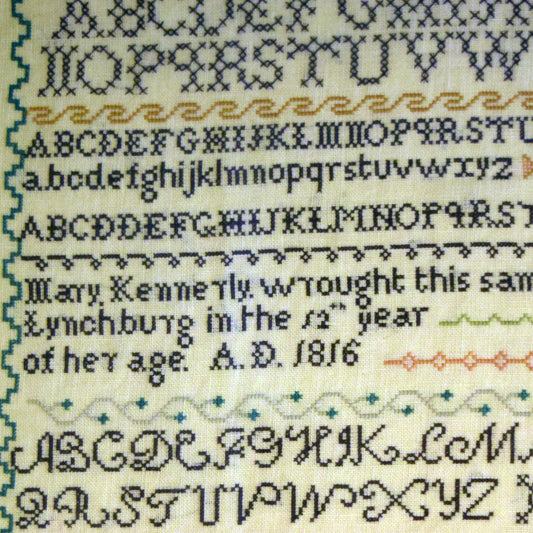 ABCDEFGHIJK
NOPQRSTUVW
ABCDEFGHIJKLMNOPQRSTU
abcdefghijklmnopqrstuvwxyz
ABCDEFGHIJKLMNOPQRST
Mary Kennerly wrought this sam
Lynchburg in the 12th year
of her age. A.D. 1816
ABCDEFGHIKLM
QRSTUVWXYZ